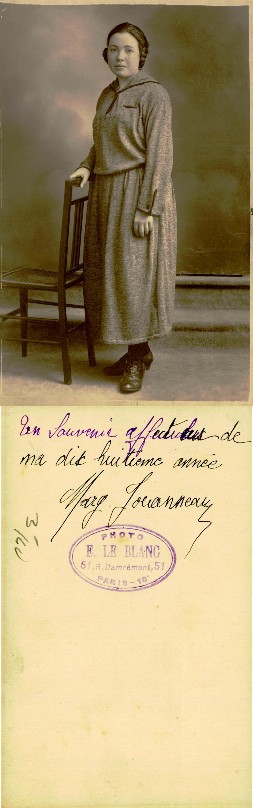 En Souvenir affectueux de
ma dix huitième année
Marg Jouanneau
PHOTO
E. LE BLANC
51, R. Damrémont, 51
PARIS-18ᵉ